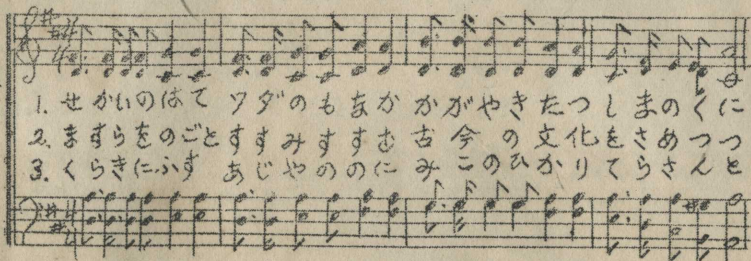 1. せかいのはて ワダのもなか かがやきたつ しまのくに
2. ますらをのごと すすみすすむ 古今の文化をさめつつ
3. くらきにふす あじやののに みこのひかり てらさんと